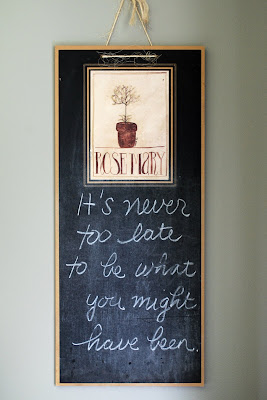 ROSEMARY
It's never
too late
to be what
you might
have been.